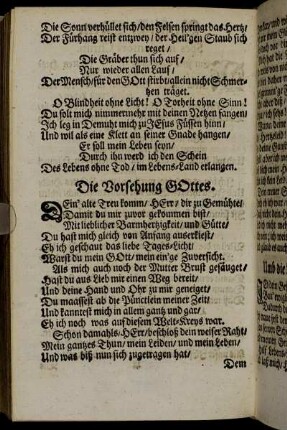 Die Sonn verhüllet sich/ den Felsen springt das Hertz/
Der Fürhang reist entzwey/ der Heil'gen Staub sich
reget/
Die Gräber thun sich auf/
Nur wieder allen Lauf/
Der Mensch/ für den GOtt stirbt/ allein nicht Schmer-
tzen träget.
O Blindheit ohne Licht! O Torheit ohne Sinn!
Du solt mich nimmermehr mit deinen Netzen fangen/
Ich leg in Demuht mich zu JEsus Füssen hinn/
Und wil als eine Klett an seiner Gnade hangen/
Er soll mein Leben seyn/
Durch ihn werd ich den Schein
Des Lebens ohne Tod/ im Lebens-Land erlangen.
Die Vorsehung GOttes.
DEin' alte Treu komm/ HErr/ dir zu Gemühte/
Damit du mir zuvor gekommen bist/
Mit lieblicher Barmhertzigkeit/ und Güte/
Du hast mich gleich von Anfang auserkiest/
Eh ich geschaut das liebe Tages-Licht/
Warst du mein GOtt/ mein ein'ge Zuversicht.
Als mich auch noch der Mutter Brust gesäuget/
Hast du aus Lieb mir einen Weg bereit/
Und deine Hand und Ohr zu mir geneiget/
Du maassest ab die Pünctlein meiner Zeit/
Und kanntest mich in allem gantz und gar/
Eh ich noch was auf diesem Welt-Kreys war.
Schon damahls/ HErr/ beschloß dein weiser Raht/
Mein gantzes Thun/ mein Leiden/ und mein Leben/
Und was biß nun sich zugetragen hat/
Dem